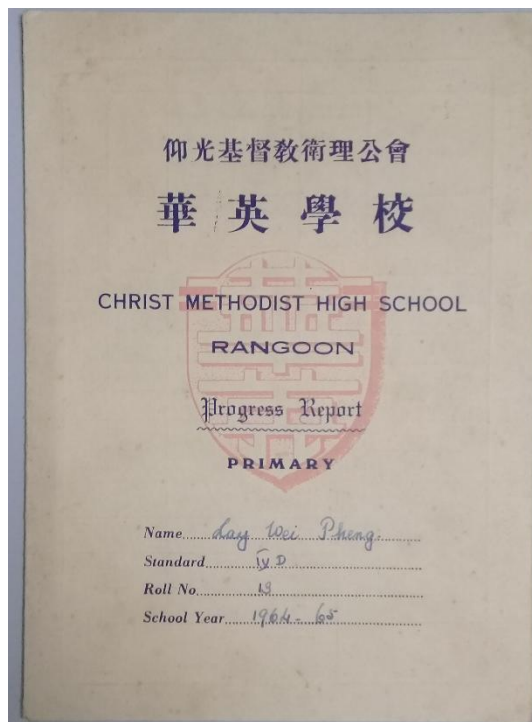 仰光基督教衛理公會
華英學校
CHRIST METHODIST HIGH SCHOOL
RANGOON
Progress Report
PRIMARY
Name Lay Wei Pheng
Standard IV D
Roll No. 13
School Year 1964-65